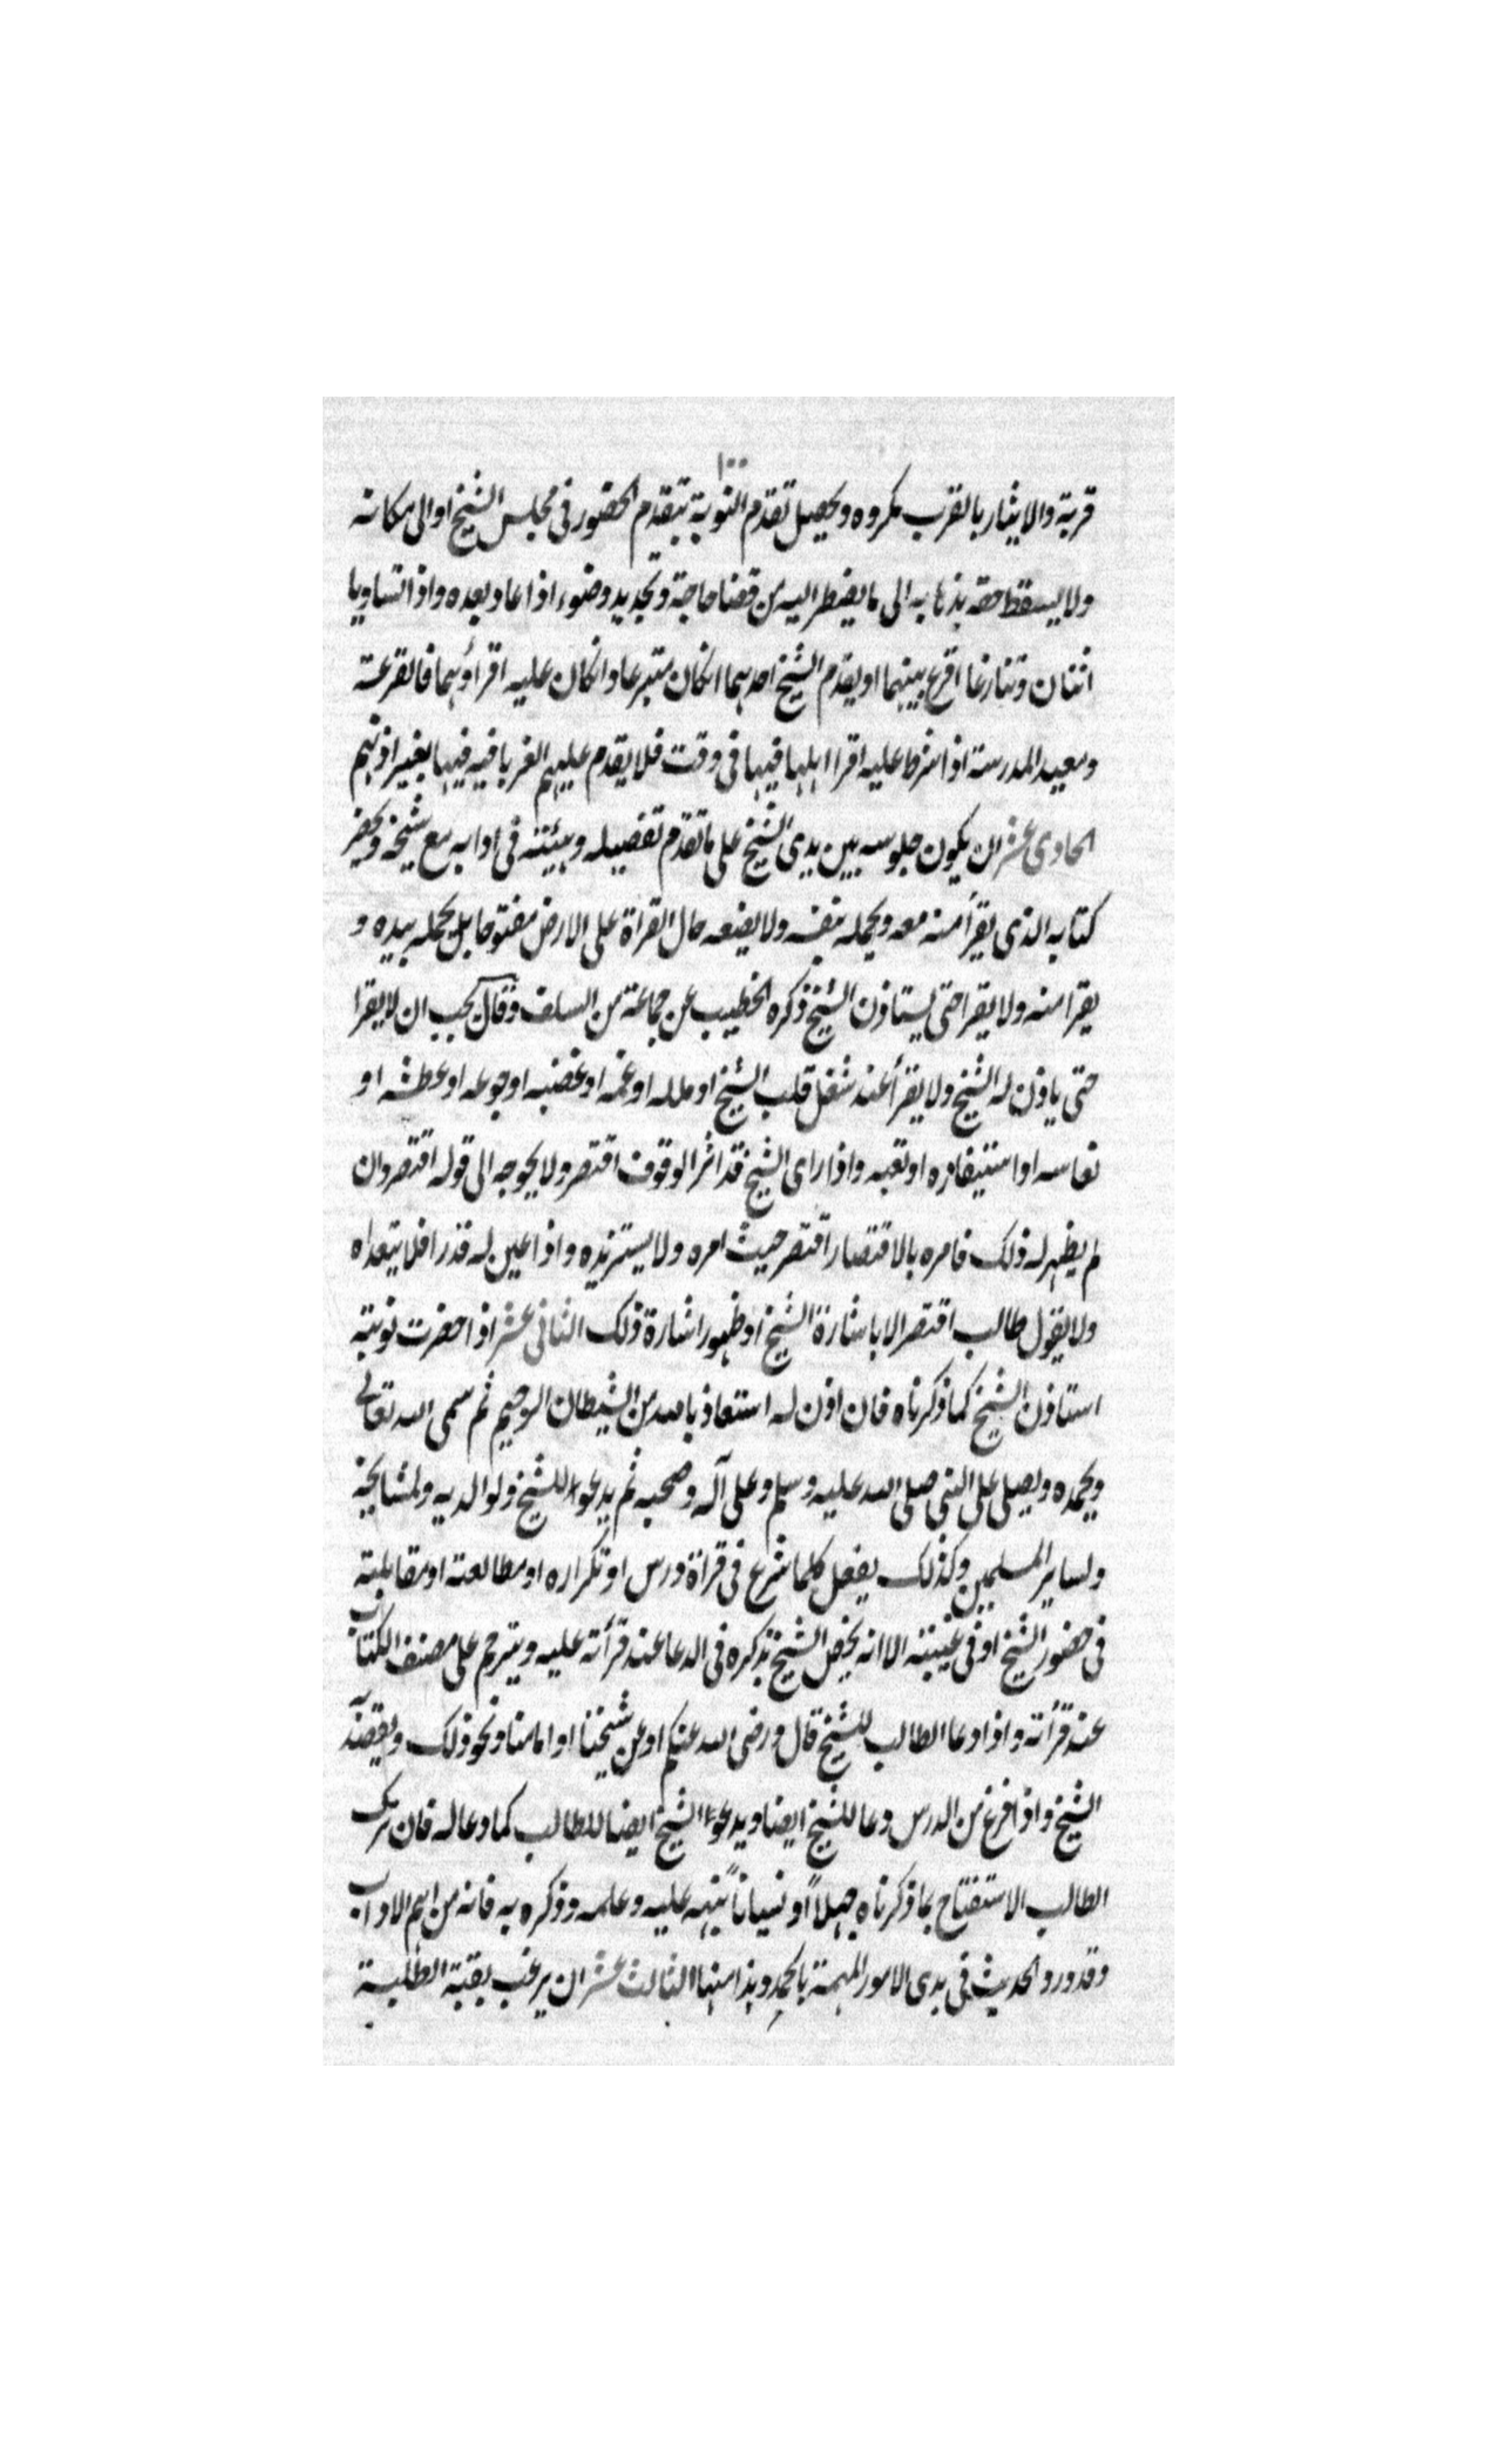 ١٠٠
قربة والايثار بالقرب مكروه ويحصل تقدم النوبة بتقدم الحضور فى مجلس الشيخ او الى مكانه
ولا يسقط حقه بذهابه الى ما يضطر اليه من قضا حاجة وتجديد وضوء اذا عاد بعده واذا تساويا
اثنان وتنازعا اقرع بينهما او يقدم الشيخ احدهما ان كان متبرعا وان كان عليه اقراؤهما فالقرعة
ومعيد المدرسة اذا شرط عليه اقرا اهلها فيها فى وقت فلا يقدم عليهم الغربا فيه فيها بغير اذنهم
الحادى عشر ان يكون جلوسه بين يدى الشيخ على ما تقدم تفصيله وهيئته فى ادابه مع شيخه ويحضر
كتابه الذى يقرأ منه معه ويحمله بنفسه ولا يضعه حال القراة على الارض مفتوحا بل يحمله بيده و
يقرا منه ولا يقرا حتى يستاذن الشيخ ذكره الخطيب عن جماعة من السلف وقال يجب ان لا يقرا
حتى ياذن له الشيخ ولا يقرأ عند شغل قلب الشيخ او ملله او غمه او غضبه او جوعه او عطشه او
نعاسه او استيفازه او تعبه واذا راى الشيخ قد اثر الوقوف اقتصر ولا يحوجه الى قوله اقتصر وان
لم يظهر له ذلك فامره بالاقتصار اقتصر حيث امره ولا يستزيده واذا عين له قدرا فلا يتعداه
ولا يقول طالب اقتصر الا باشارة الشيخ او ظهور اشارة ذلك الثانى عشر اذا حضرت نوبته
استاذن الشيخ كما ذكرناه فان اذن له استعاذ بالله من الشيطان الرجيم ثم سمى الله تعالى
ويحمده ويصلى على النبى صلى الله عليه وسلم وعلى آله وصحبه ثم يدعوا للشيخ ولوالديه ولمشايخه
ولساير المسلمين وكذلك يفعل كلما شرع فى قراة درس او تكراره او مطالعته او مقابلته
فى حضور الشيخ او فى غيبته الا انه يخص الشيخ بذكره فى الدعا عند قرأته عليه ويترحم على مصنف الكتاب
عند قرأته واذا دعا الطالب للشيخ قال ورضى الله عنكم او عن شيخنا او امامنا ونحو ذلك ويقصد
الشيخ واذا فرغ من الدرس دعا للشيخ ايضا ويدعوا الشيخ ايضا للطالب كما دعا له فان ترك
الطالب الاستفتاح بما ذكرناه جهلاً او نسياناً نبهه عليه وعلمه وذكره به فانه من اهم الاداب
وقد ورد الحديث فى بدى الامور المهمة بالحمد وهذا منها الثالث عشر ان يرغب بقية الطلبة